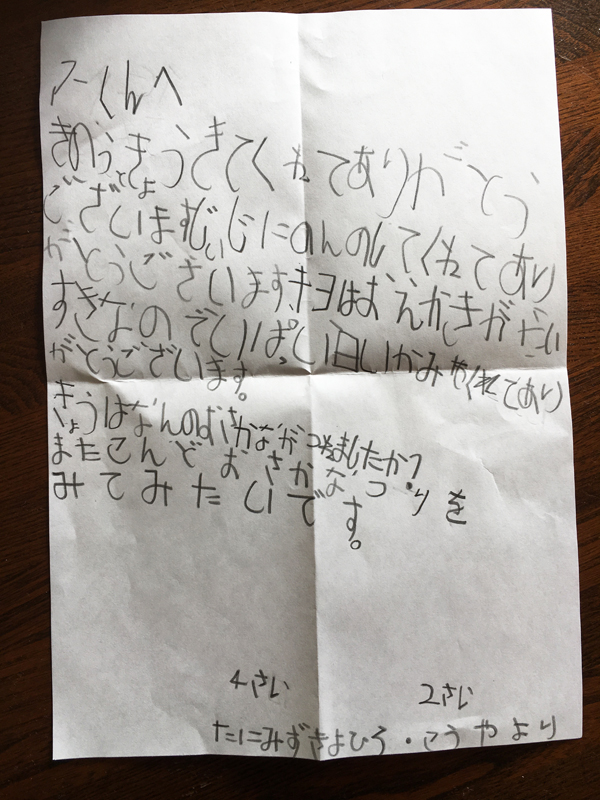 アーくんへ
きのうときょうきてくれてありがとう
ございます にのんのしてくれてあり
がとうございます。キヨはおえかきがだい
すきなのでいぱっい白いかみをくれてあり
がとうございます。
きょうはなんのおさかながつれましたか?
またこんどおさかなつりを
みてみたいです。
4さい 2さい
たにみずきよひろ・こうやより